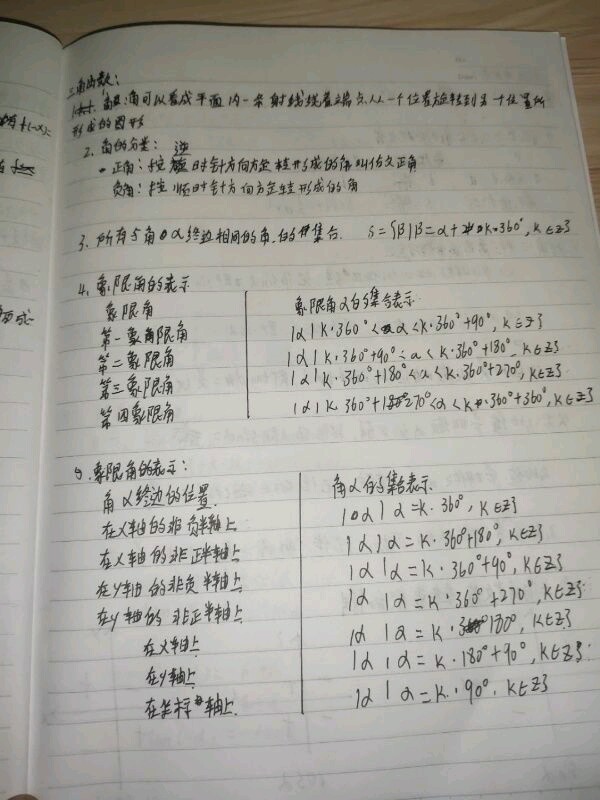 三角函数:
角: 角可以看成平面内一条射线绕着端点从一个位置旋转到另一个位置所
形成的图形
2. 角的分类: 逆
正角: 按 时针方向旋转形成的角叫做正角
负角: 按顺时针方向旋转形成的角
3. 所有与角α终边相同的角的集合. S={β|β=α+k·360°, k∈Z}
4. 象限角的表示
象限角 象限角α的集合表示
第一象限角 {α|k·360°<α<k·360°+90°, k∈Z}
第二象限角 {α|k·360°+90°<α<k·360°+180°, k∈Z}
第三象限角 {α|k·360°+180°<α<k·360°+270°, k∈Z}
第四象限角 {α|k·360°+270°<α<k·360°+360°, k∈Z}
5. 象限角的表示:
角α终边的位置 角α的集合表示
在x轴的非负半轴上 {α|α=k·360°, k∈Z}
在x轴的非正半轴上 {α|α=k·360°+180°, k∈Z}
在y轴的非负半轴上 {α|α=k·360°+90°, k∈Z}
在y轴的非正半轴上 {α|α=k·360°+270°, k∈Z}
在x轴上 {α|α=k·180°, k∈Z}
在y轴上 {α|α=k·180°+90°, k∈Z}
在坐标轴上 {α|α=k·90°, k∈Z}